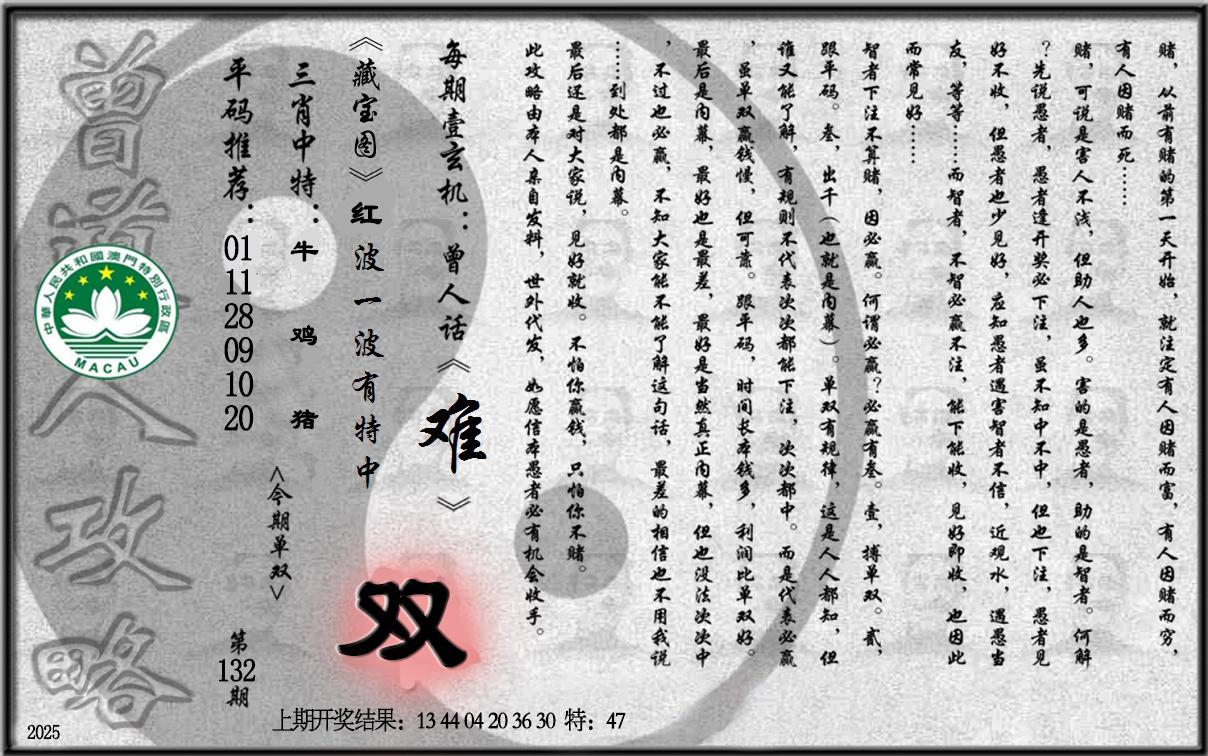 赌，从前有赌的第一天开始，就注定有人因赌而富，有人因赌而穷，
有人因赌而死……
赌，可说是害人不浅，但助人也多。害的是愚者，助的是智者。何解
？先说愚者，愚者逢开奖必下注，虽不知中不中，但也下注，愚者见
好不收，但愚者也少见好，应知愚者遇害智者不信，近观水，遇愚当
友，等等……而智者，不智必赢不注，能下能收，见好即收，也因此
而常见好……
智者下注不算赌，因必赢。何谓必赢？必赢有叁。壹，搏单双。贰，
跟平码。叁，出千（也就是内幕）。单双有规律，这是人人都知，但
谁又能了解，有规则不代表次次都能下注，次次都中。而是代表必赢
，虽单双赢钱慢，但可靠。跟平码，时间长本钱多，利润比单双好。
最后是内幕，最好也是最差，最好是当然真正内幕，但也没法次次中
，不过也必赢，不知大家能不能了解这句话，最差的相信也不用我说
……到处都是内幕。
最后还是对大家说，见好就收。不怕你赢钱，只怕你不赌。
此攻略由本人亲自发料，世外代发，如愿信本愚者必有机会收手。
每期壹玄机：曾人话《难》
《藏宝图》红波一波有特中
双
三肖中特：牛 鸡 猪
<今期单双>
平码推荐：01 11 28 09 10 20
第132期
曾道人攻略
中華人民共和國澳門特別行政區
MACAU
上期开奖结果：13 44 04 20 36 30 特：47
2025